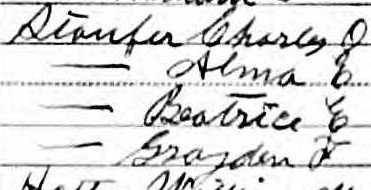 Staufer Charles J
— Alma E
— Beatrice E
— Grayden F